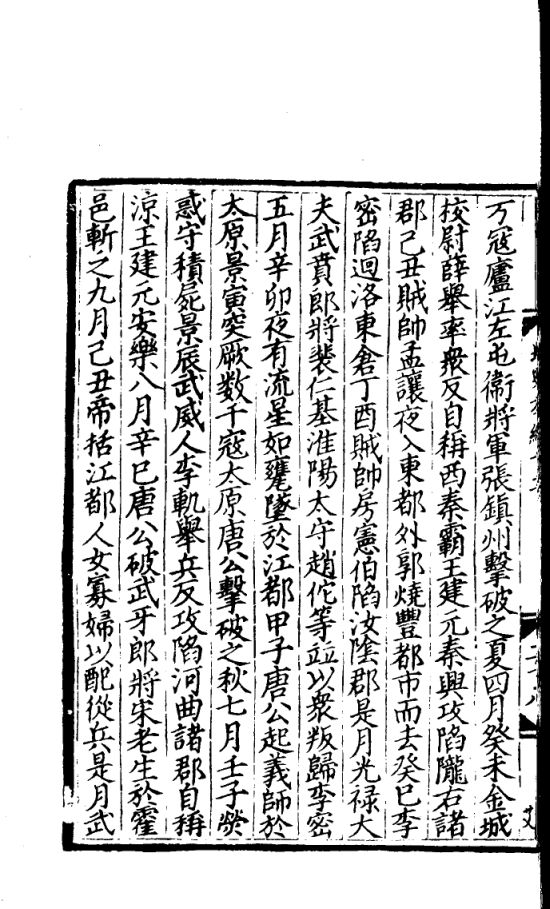 万寇廬江左屯衛將軍張鎮州擊破之夏四月癸未金城
校尉薛舉率衆反自稱西秦霸王建元秦興攻陷隴右諸
郡己丑賊帥孟讓夜入東都外郭燒豐都市而去癸巳李
密陷迴洛東倉丁酉賊帥房憲伯陷汝陰郡是月光禄大
夫武賁郎將裴仁基淮陽太守趙佗等並以衆叛歸李密
五月辛卯夜有流星如甕墜於江都甲子唐公起義師於
太原景寅突厥数千寇太原唐公擊破之秋七月壬子熒
惑守積屍景辰武威人李軌舉兵反攻陷河曲諸郡自稱
凉王建元安樂八月辛巳唐公破武牙郎將宋老生於霍
邑斬之九月己丑帝括江都人女寡婦以配從兵是月武